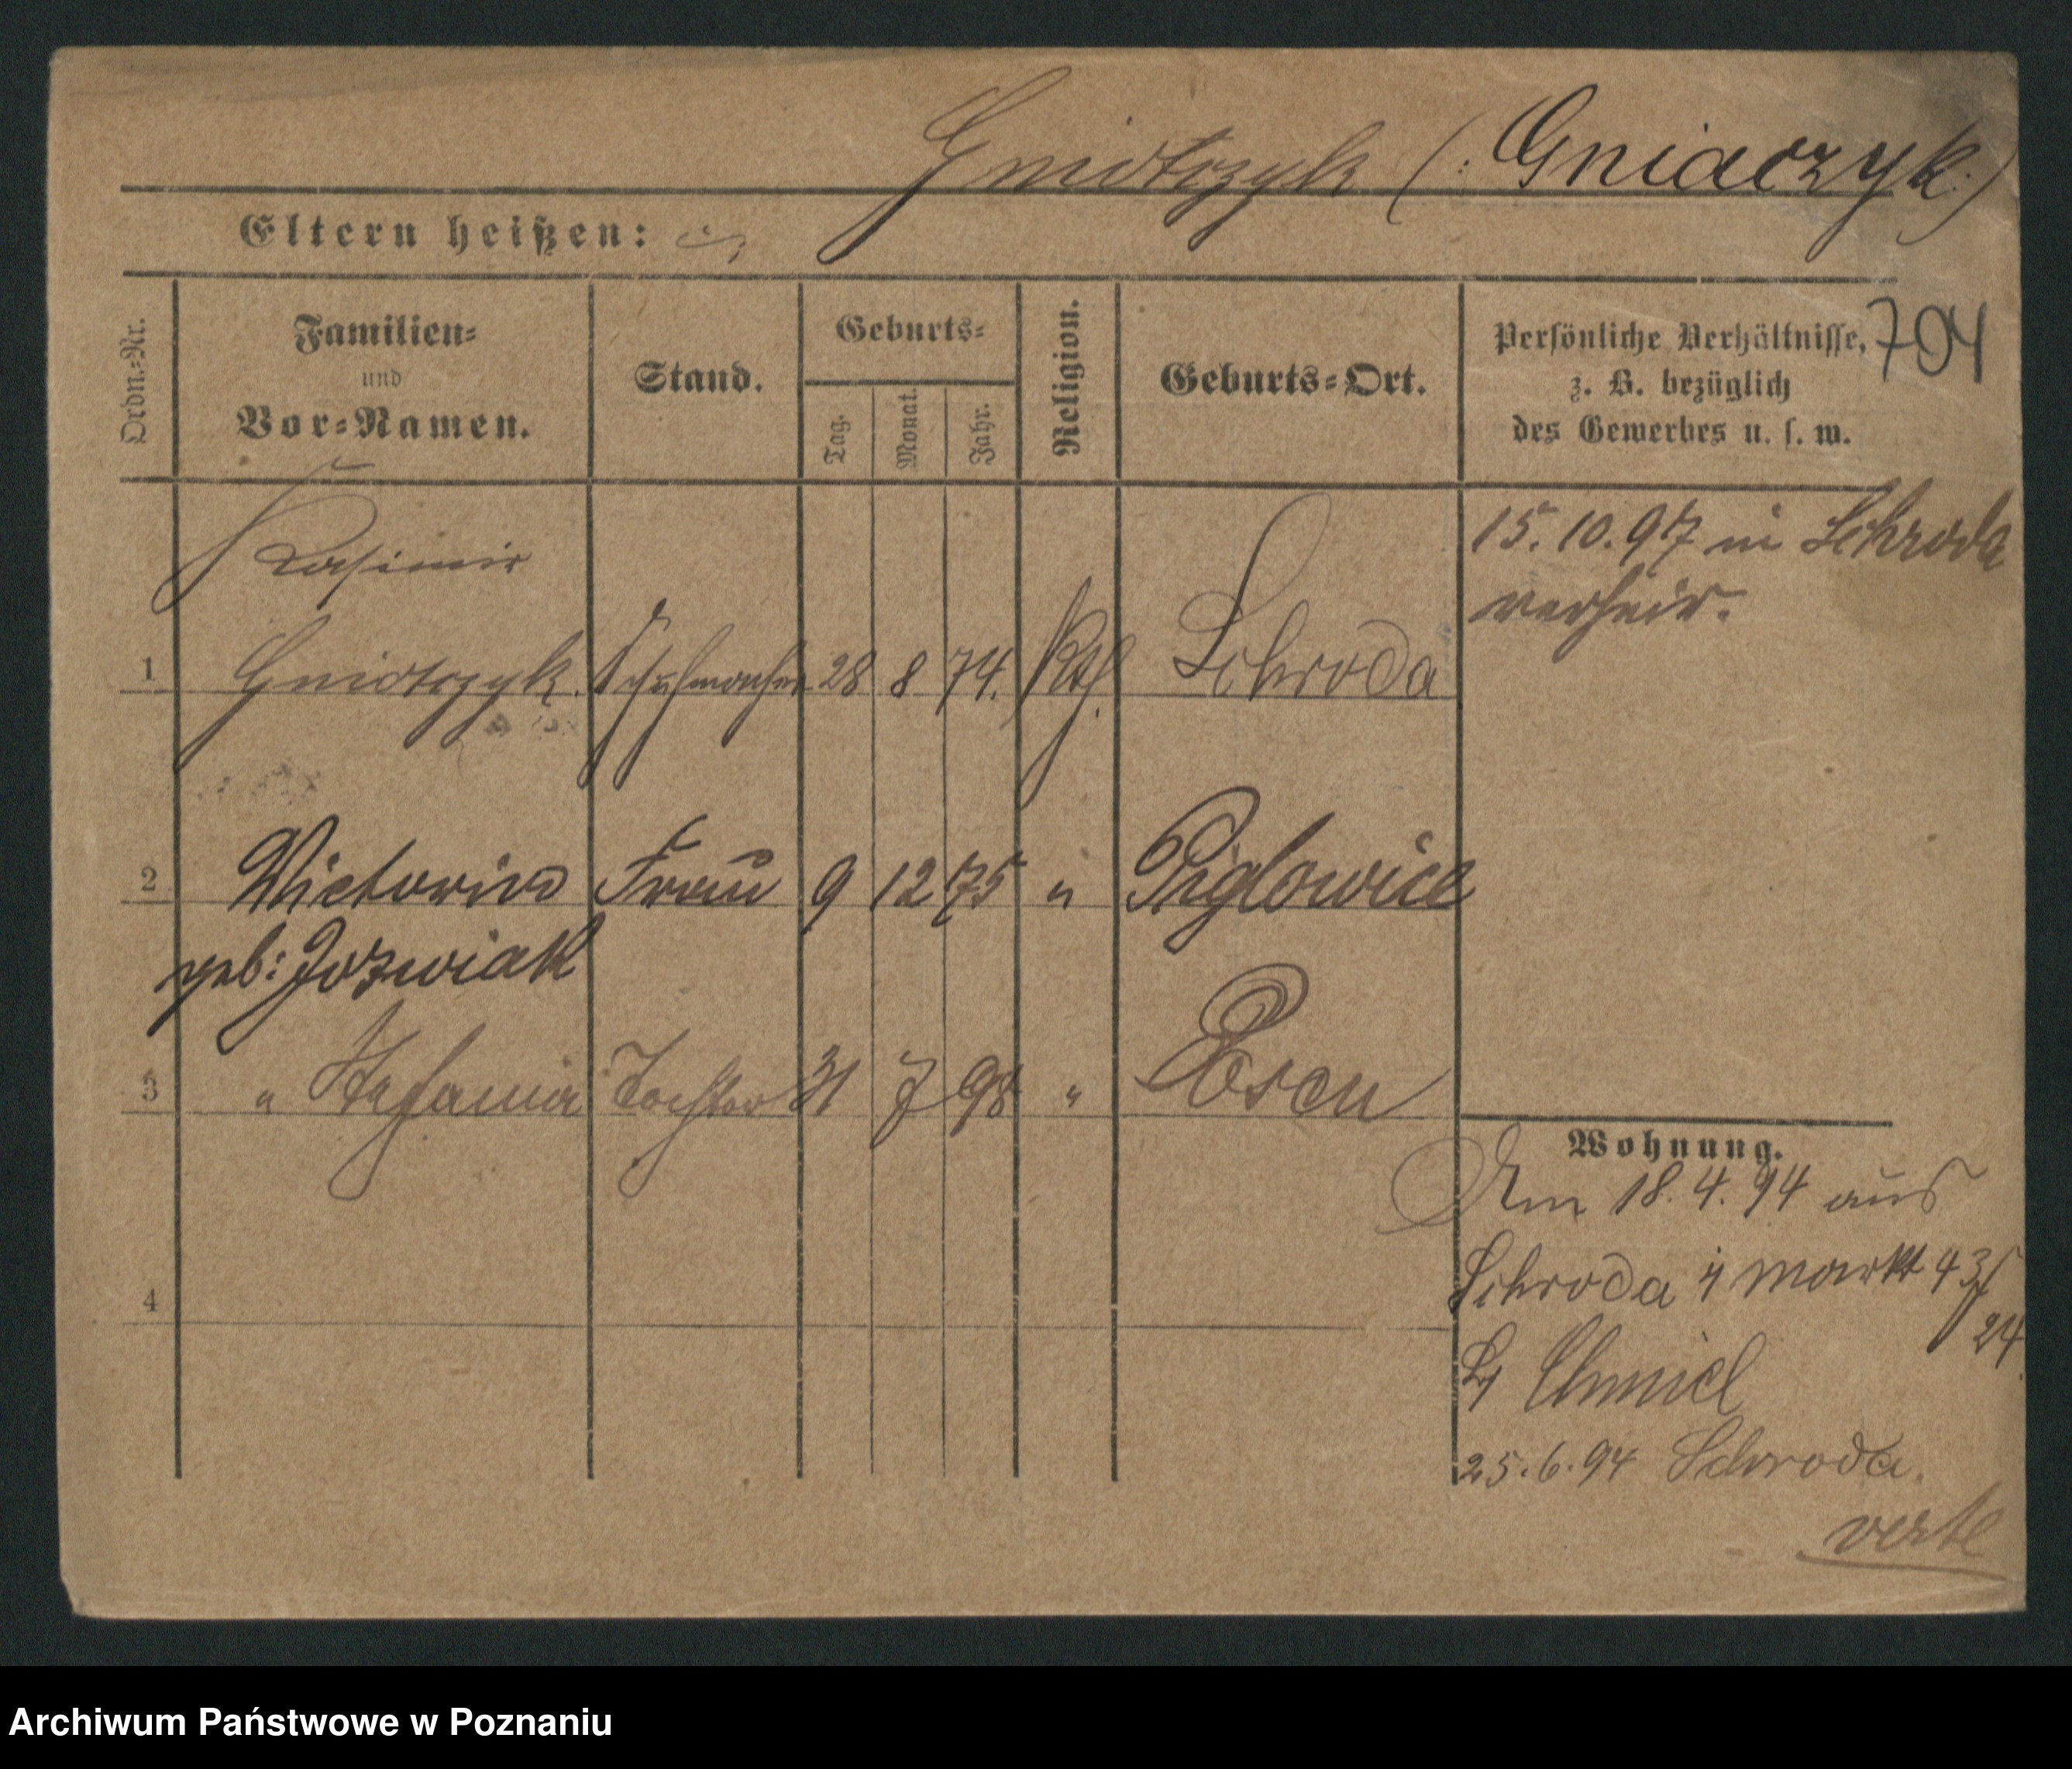 Gniotczyk (: Gniaczyk :)
Eltern heißen:
Ordn.-Nr.
Familien- und Vor-Namen.
Stand.
Geburts-
Tag.
Monat.
Jahr.
Religion.
Geburts-Ort.
Persönliche Verhältnisse,
z. B. bezüglich
des Gewerbes u. s. w.
794
15. 10. 97 in Schroda
verheir.
Kasimir
1 Gniotczyk. Schuhmacher 28 8 74. Kth. Schroda
2 Victoria Frau 9 12 75 " Piglowice
geb: Jozwiak
3 " Stefania Tochter 31 7 98 " Posen
4
Wohnung.
Am 18. 4. 94 aus
Schroda Markt 43/
24
Chmiel
25. 6. 94 Schroda.
verte
Archiwum Państwowe w Poznaniu